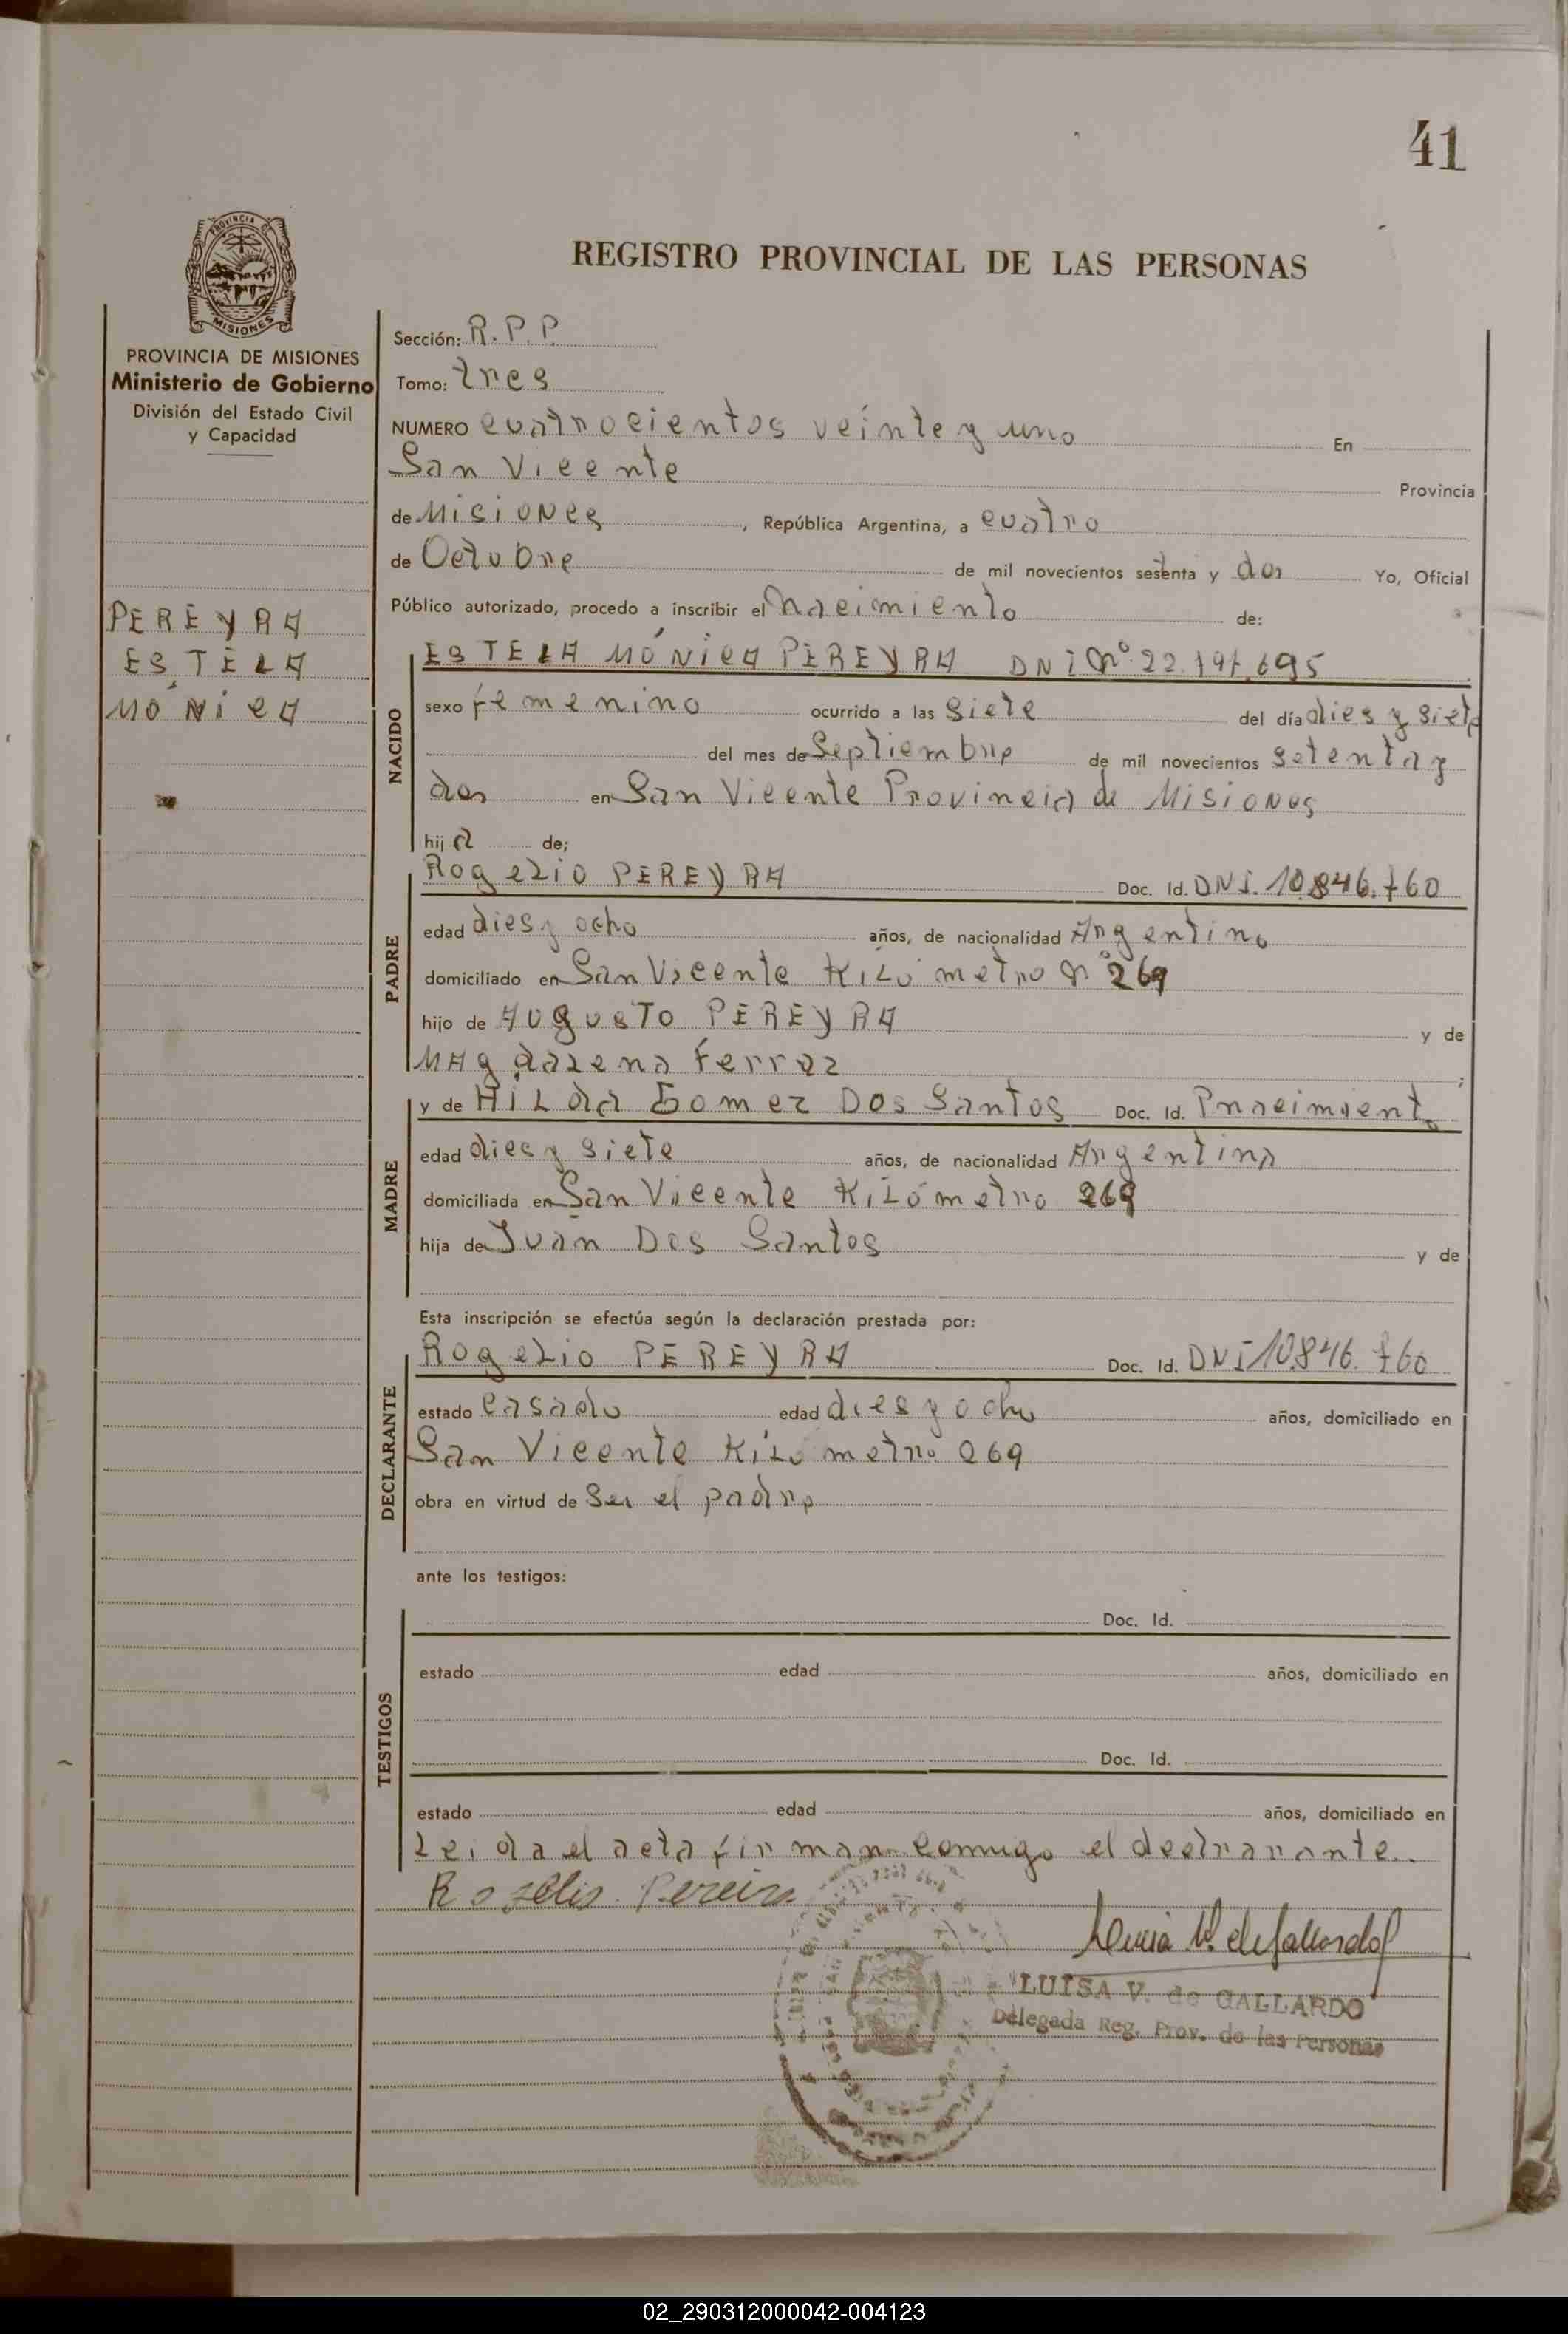 41
PROVINCIA DE MISIONES
REGISTRO PROVINCIAL DE LAS PERSONAS
PROVINCIA DE MISIONES
Ministerio de Gobierno
División del Estado Civil
y Capacidad
PEREYRA
ESTELA
MÓNICA
Sección: R.P.P.
Tomo: tres
NUMERO cuatrocientos veinte y uno En
San Vicente Provincia
de Misiones, República Argentina, a cuatro
de Octubre de mil novecientos setenta y dos Yo, Oficial
Público autorizado, procedo a inscribir el nacimiento de:
NACIDO
ESTELA MÓNICA PEREYRA DNI Nº 22.797.695
sexo femenino ocurrido a las siete del día dies y siete
del mes de Septiembre de mil novecientos setenta y
dos en San Vicente Provincia de Misiones
hija de;
PADRE
Rogelio PEREYRA Doc. Id. DNI. 10.846.760
edad dies y ocho años, de nacionalidad Argentino
domiciliado en San Vicente Kilómetro Nº 269
hijo de Augusto PEREYRA y de
Magdalena Ferraz;
MADRE
y de Hilda Gomez Dos Santos Doc. Id. Pnacimiento
edad dies y siete años, de nacionalidad Argentina
domiciliada en San Vicente Kilómetro 269
hija de Juan Dos Santos y de
Esta inscripción se efectúa según la declaración prestada por:
DECLARANTE
Rogelio PEREYRA Doc. Id. DNI 10.846.760
estado casado edad dies y ocho años, domiciliado en
San Vicente Kilómetro 269
obra en virtud de ser el padre
ante los testigos:
TESTIGOS
Doc. Id.
estado edad años, domiciliado en
Doc. Id.
estado edad años, domiciliado en
Leida el acta firman conmigo el declarante..
Rogelio Pereira
LUISA V. de GALLARDO
Delegada Reg. Prov. de las Personas
02_290312000042-004123